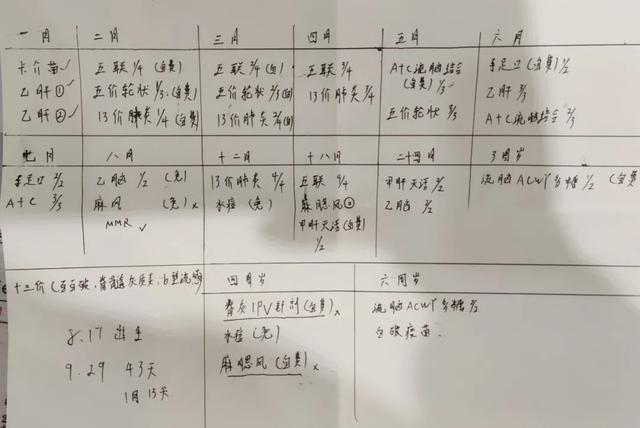 一月 二月 三月 四月 五月 六月
卡介苗✓ 五联 1/4 (自费) 五联 2/4 (自) 五联 3/4 A+C流脑结合 手足口 (自费) 1/2
(自费) 1/3
乙肝① 五价轮状 1/3 (自费) 五价轮状 2/3 (自) 13价肺炎 3/4 乙肝 3/3
乙肝② 13价肺炎 1/4 (自费) 13价肺炎 2/4 (自) 五价轮状 3/3 A+C流脑结合 2/3
七月 八月 十二月 十八月 二十四月 3周岁
手足口 2/2 乙脑 1/2 (免) 13价肺炎 4/4 五联 4/4 甲肝灭活 2/2 流脑ACWY多糖 1/2 (自费
A+C 3/3 麻风 (免) x 水痘 (免) 麻腮风 乙脑 2/2
MMR ✓ 甲肝灭活 (自费)
1/2
四周岁 六周岁
IPV针剂 (自费) x 流脑ACWY多糖 2/2
8.17 出生 水痘 (免) 白破疫苗.
9.29 43天 麻腮风 (自费) x
1月13天